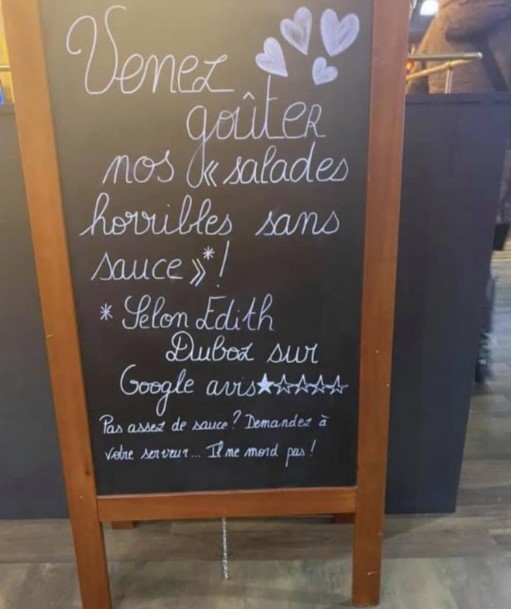 Venez
goûter
nos « salades
horribles sans
sauce »* !
* Selon Edith
Duboz sur
Google avis ★☆☆☆☆
Pas assez de sauce ? Demandez à
votre serveur... Il ne mord pas !